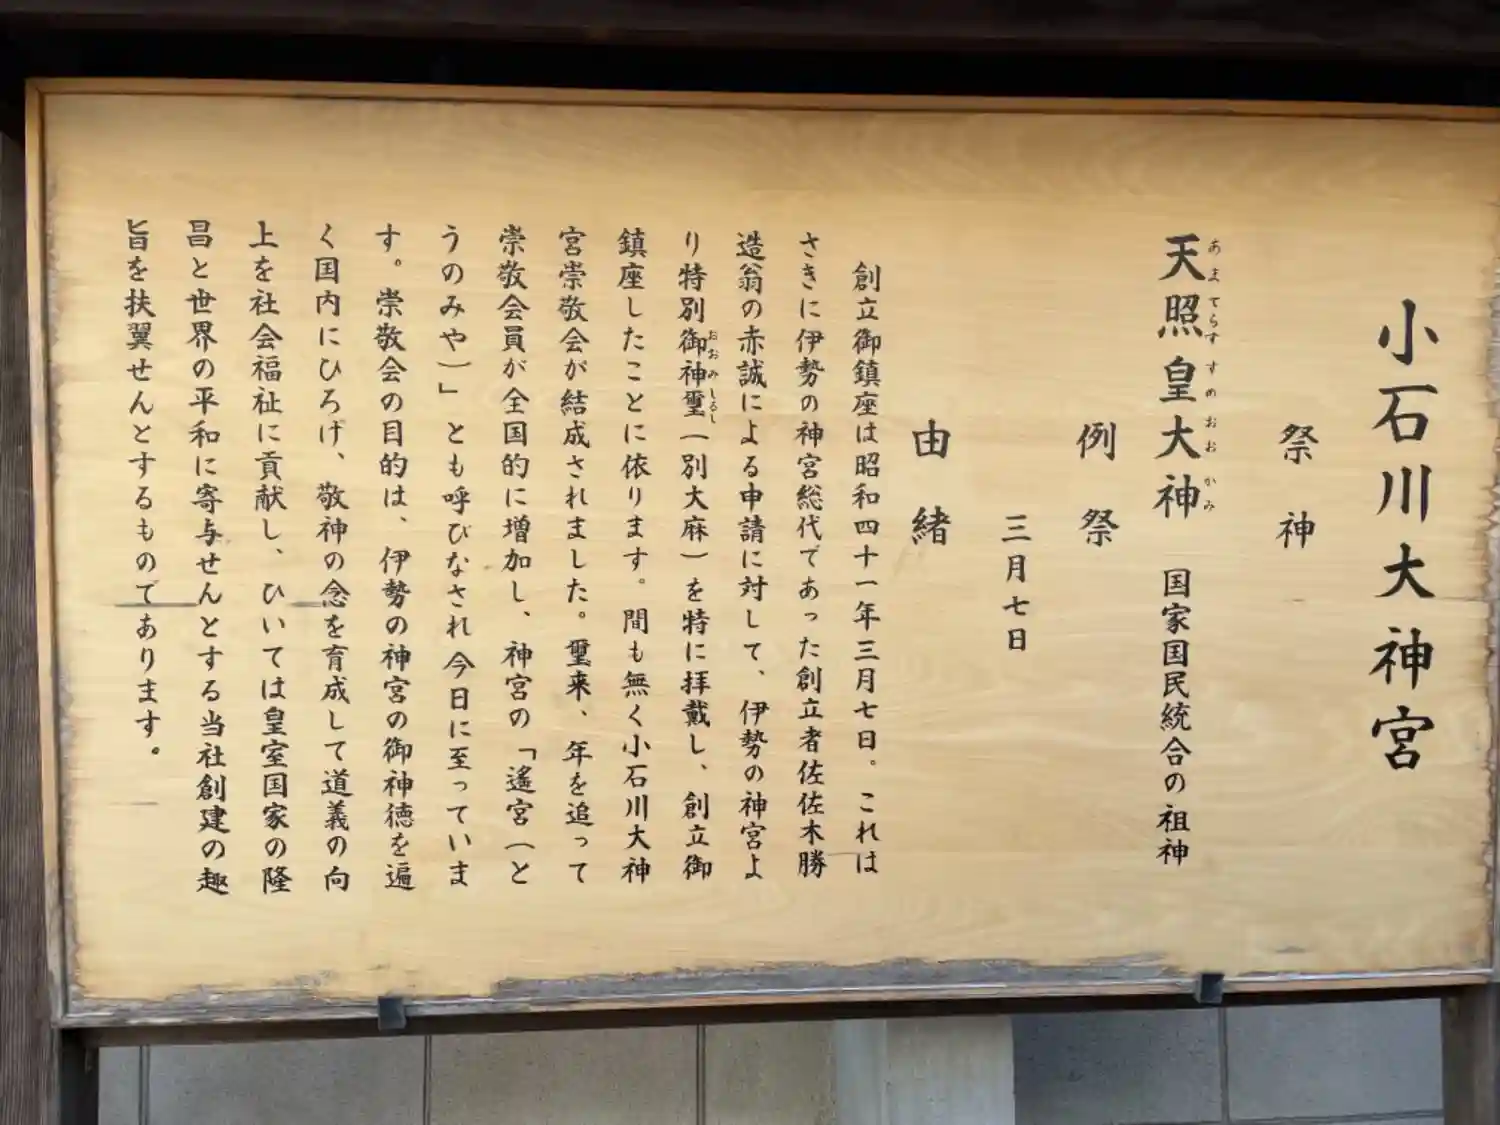 小石川大神宮
祭神
天照皇大神 国家国民統合の祖神
あまてらすすめおおかみ
例祭
三月七日
由緒
創立御鎮座は昭和四十一年三月七日。これは
さきに伊勢の神宮総代であった創立者佐佐木勝
造翁の赤誠による申請に対して、伊勢の神宮よ
り特別御神璽(別大麻)を特に拝戴し、創立御
おおみしるし
鎮座したことに依ります。間も無く小石川大神
宮崇敬会が結成されました。璽来、年を追って
崇敬会員が全国的に増加し、神宮の「遙宮(と
うのみや)」とも呼びなされ今日に至っていま
す。崇敬会の目的は、伊勢の神宮の御神徳を遍
く国内にひろげ、敬神の念を育成して道義の向
上を社会福祉に貢献し、ひいては皇室国家の隆
昌と世界の平和に寄与せんとする当社創建の趣
旨を扶翼せんとするものであります。